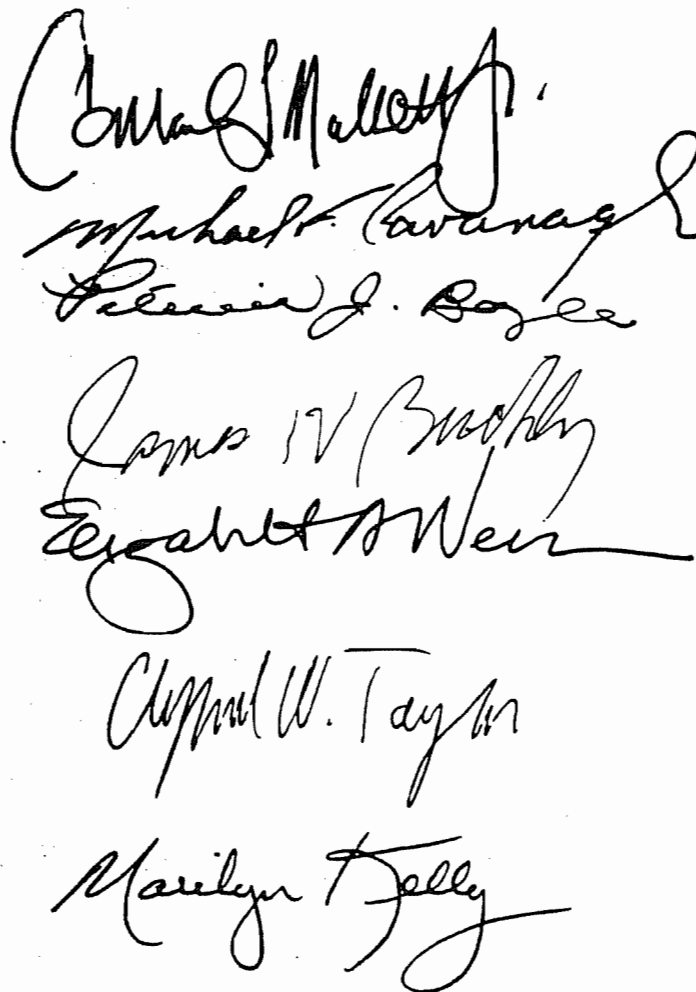 Conrad L Mallett Jr.
Michael F. Cavanagh
Patricia J. Boyle
James H Brickley
Elizabeth A Weaver
Clifford W. Taylor
Marilyn Kelly